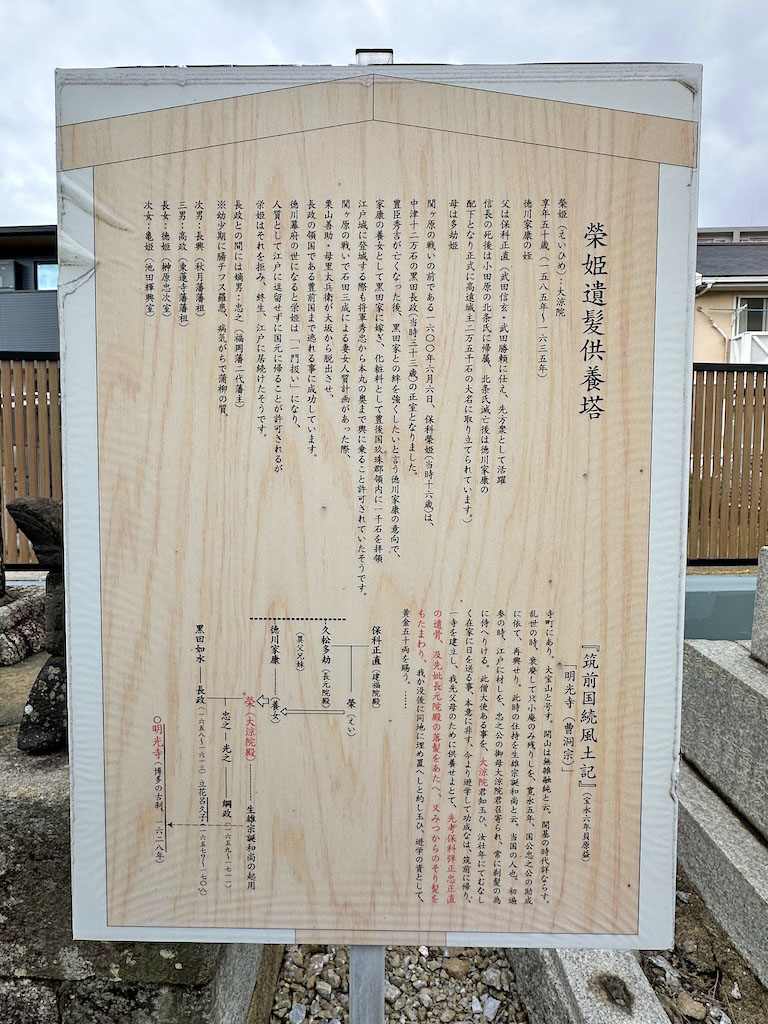 榮姫遺髪供養塔
榮姫(えいひめ)…大涼院
享年五十歳(一五八五年~一六三五年)
徳川家康の姪
父は保科正直(武田信玄・武田勝頼に仕え、先方衆として活躍
信長の死後は小田原の北条氏に帰属、北条氏滅亡後は徳川家康の
配下となり正式に高遠城主二万五千石の大名に取り立てられています。)
母は多劫姫
関ヶ原の戦いの前である一六〇〇年六月六日、保科榮姫(当時十六歳)は、
中津十二万石の黒田長政(当時三十三歳)の正室となりました。
豊臣秀吉が亡くなった後、黒田家との絆を強くしたいと言う徳川家康の意向で、
家康の養女として黒田家に嫁ぎ、化粧料として豊後国玖珠郡領内に一千石を拝領
江戸城に登城する際も将軍秀忠から本丸の奥まで輿に乗ること許可されていたそうです。
関ヶ原の戦いで石田三成による妻女人質計画があった際、
栗山善助・母里太兵衛が大坂から脱出させ、
長政の領国である豊前国まで逃れる事に成功しています。
徳川幕府の世になると栄姫は「一門扱い」になり、
人質として江戸に逗留せずに国元に帰ることが許可されるが
栄姫はそれを拒み、終生、江戸に居続けたそうです。
長政との間には嫡男:忠之(福岡藩二代藩主)
※幼少期に腸チフス羅患、病気がちで蒲柳の質。
次男:長興(秋月藩藩祖)
三男:高政(東蓮寺藩藩祖)
長女:徳姫(榊原忠次室)
次女:亀姫(池田輝興室)
『筑前国続風土記』(宝永六年貝原益)
「明光寺(曹洞宗)」
寺町にあり。大宝山と号す。開山は無雑融純と云。開基の時代詳ならす。
乱世の時、衰廃して只小庵のみ残りしを、寛永五年、国公忠之公の助成
に依て、再興せり。此時の住持を生雄宗誕和尚と云。当国の人也。初遍
参の時、江戸に村しを、忠之公の御母大涼院君召寄られ、常に剃髪の為
に侍へりける。此僧大使ある事を、大涼院君知玉ひ、汝壮年にてむなし
く在家に日を送る事、本意に非す、今より遊学して功成なは、筑前に帰り、
一寺を建立し、我先父母のために供養せよとて、先考保科弾正忠正直
の遺骨、及先妣長元院殿の落髪をあたへ、又みつからのそり髪を
もたまわり、我か没後に同地に埋め置へしと約し玉ひ、遊学の資として、
黄金五十両を賜う。……
保科正直(建福院殿)
久松多劫(長元院殿)
(異父兄妹)
徳川家康
榮(えい)
(養女)
榮(大涼院殿)……生雄宗誕和尚の起用
黒田如水
長政(一五六八~一六二三)
忠之
光之
綱政(一六五九~一七一一)
立花呂久子(一六五七?~一七〇六)
〇明光寺(博多の古刹、一六二八年)